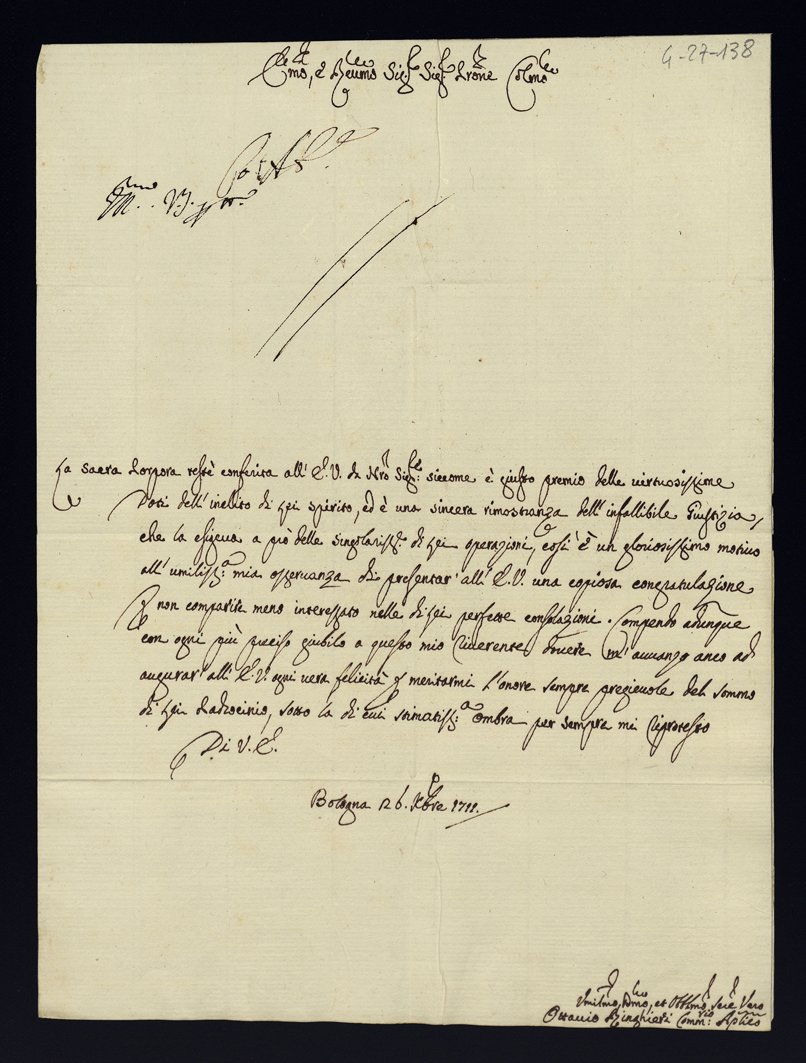 4-27-138
Emo, e Reumo Sig:r Sig:r Prone Colmo
La sacra Porpora restò conferita all' E.V. da Nro Sig:re siccome è giusto premio delle virtuosissime
Doti dell' inclito di Lei spirito, ed è una sincera rimostranza dell' infallibile Giustizia,
che la esigeva a prò delle singolariss:e di Lei operazioni, così è un gloriosissimo motivo
all' umiliss:a mia osservanza di presentar' all' E.V. una copiosa congratulazione
non compartita meno interessato nelle di Lei perfette consolazioni. Compendo adunque
con ogni più preciso giubilo a questo mio riverente dovere m' auuanzo anco ad
augurar' all' E.V. ogni vera felicità p meritarmi l' onore sempre pregievole del sommo
di Lei Padrocinio, sotto la di cui stimatiss:a ombra per sempre mi riprotesto
Di V.E.
Bologna 26. Xbre 1711.
Umilmo, Dmo, et Obblmo Sere Vero
Ottavio Ringhieri Comm:rio Aplico